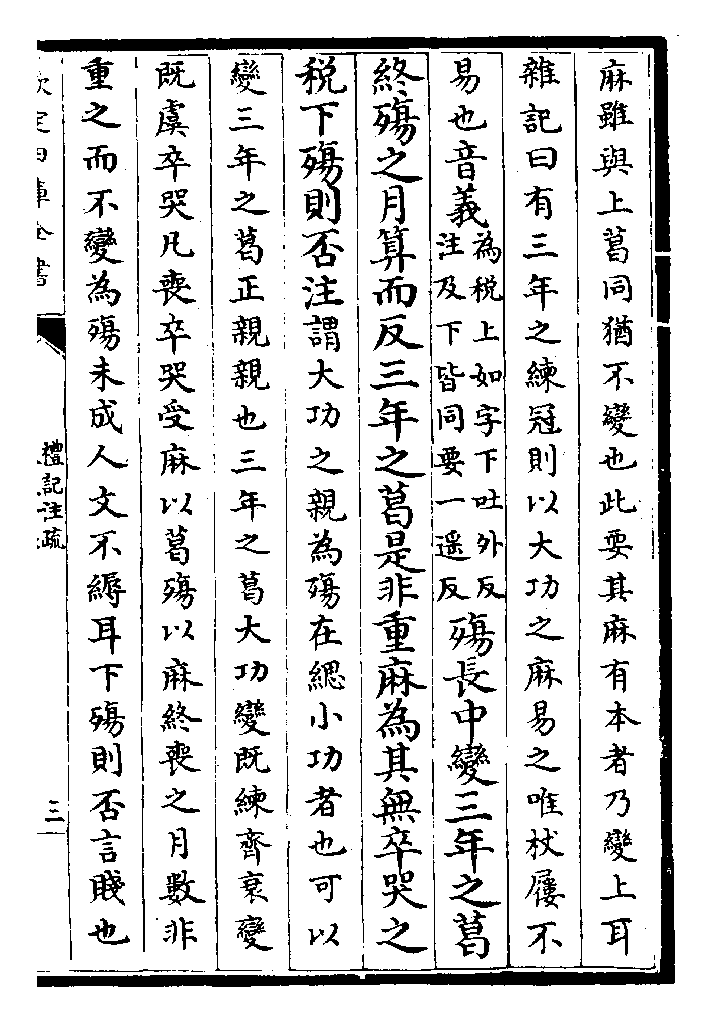 麻雖與上葛同猶不變也此要其麻有本者乃變上耳
雜記曰有三年之練冠則以大功之麻易之唯杖屨不
易也音義為税上如字下吐外反注及下皆同要一遥反殤長中變三年之葛
終殤之月算而反三年之葛是非重麻為其無卒哭之
税下殤則否注謂大功之親為殤在緦小功者也可以
變三年之葛正親親也三年之葛大功變既練齊衰變
既虞卒哭凡喪卒哭受麻以葛殤以麻終喪之月數非
重之而不變為殤未成人文不縟耳下殤則否言賤也
欽定四庫全書
禮記注疏
三